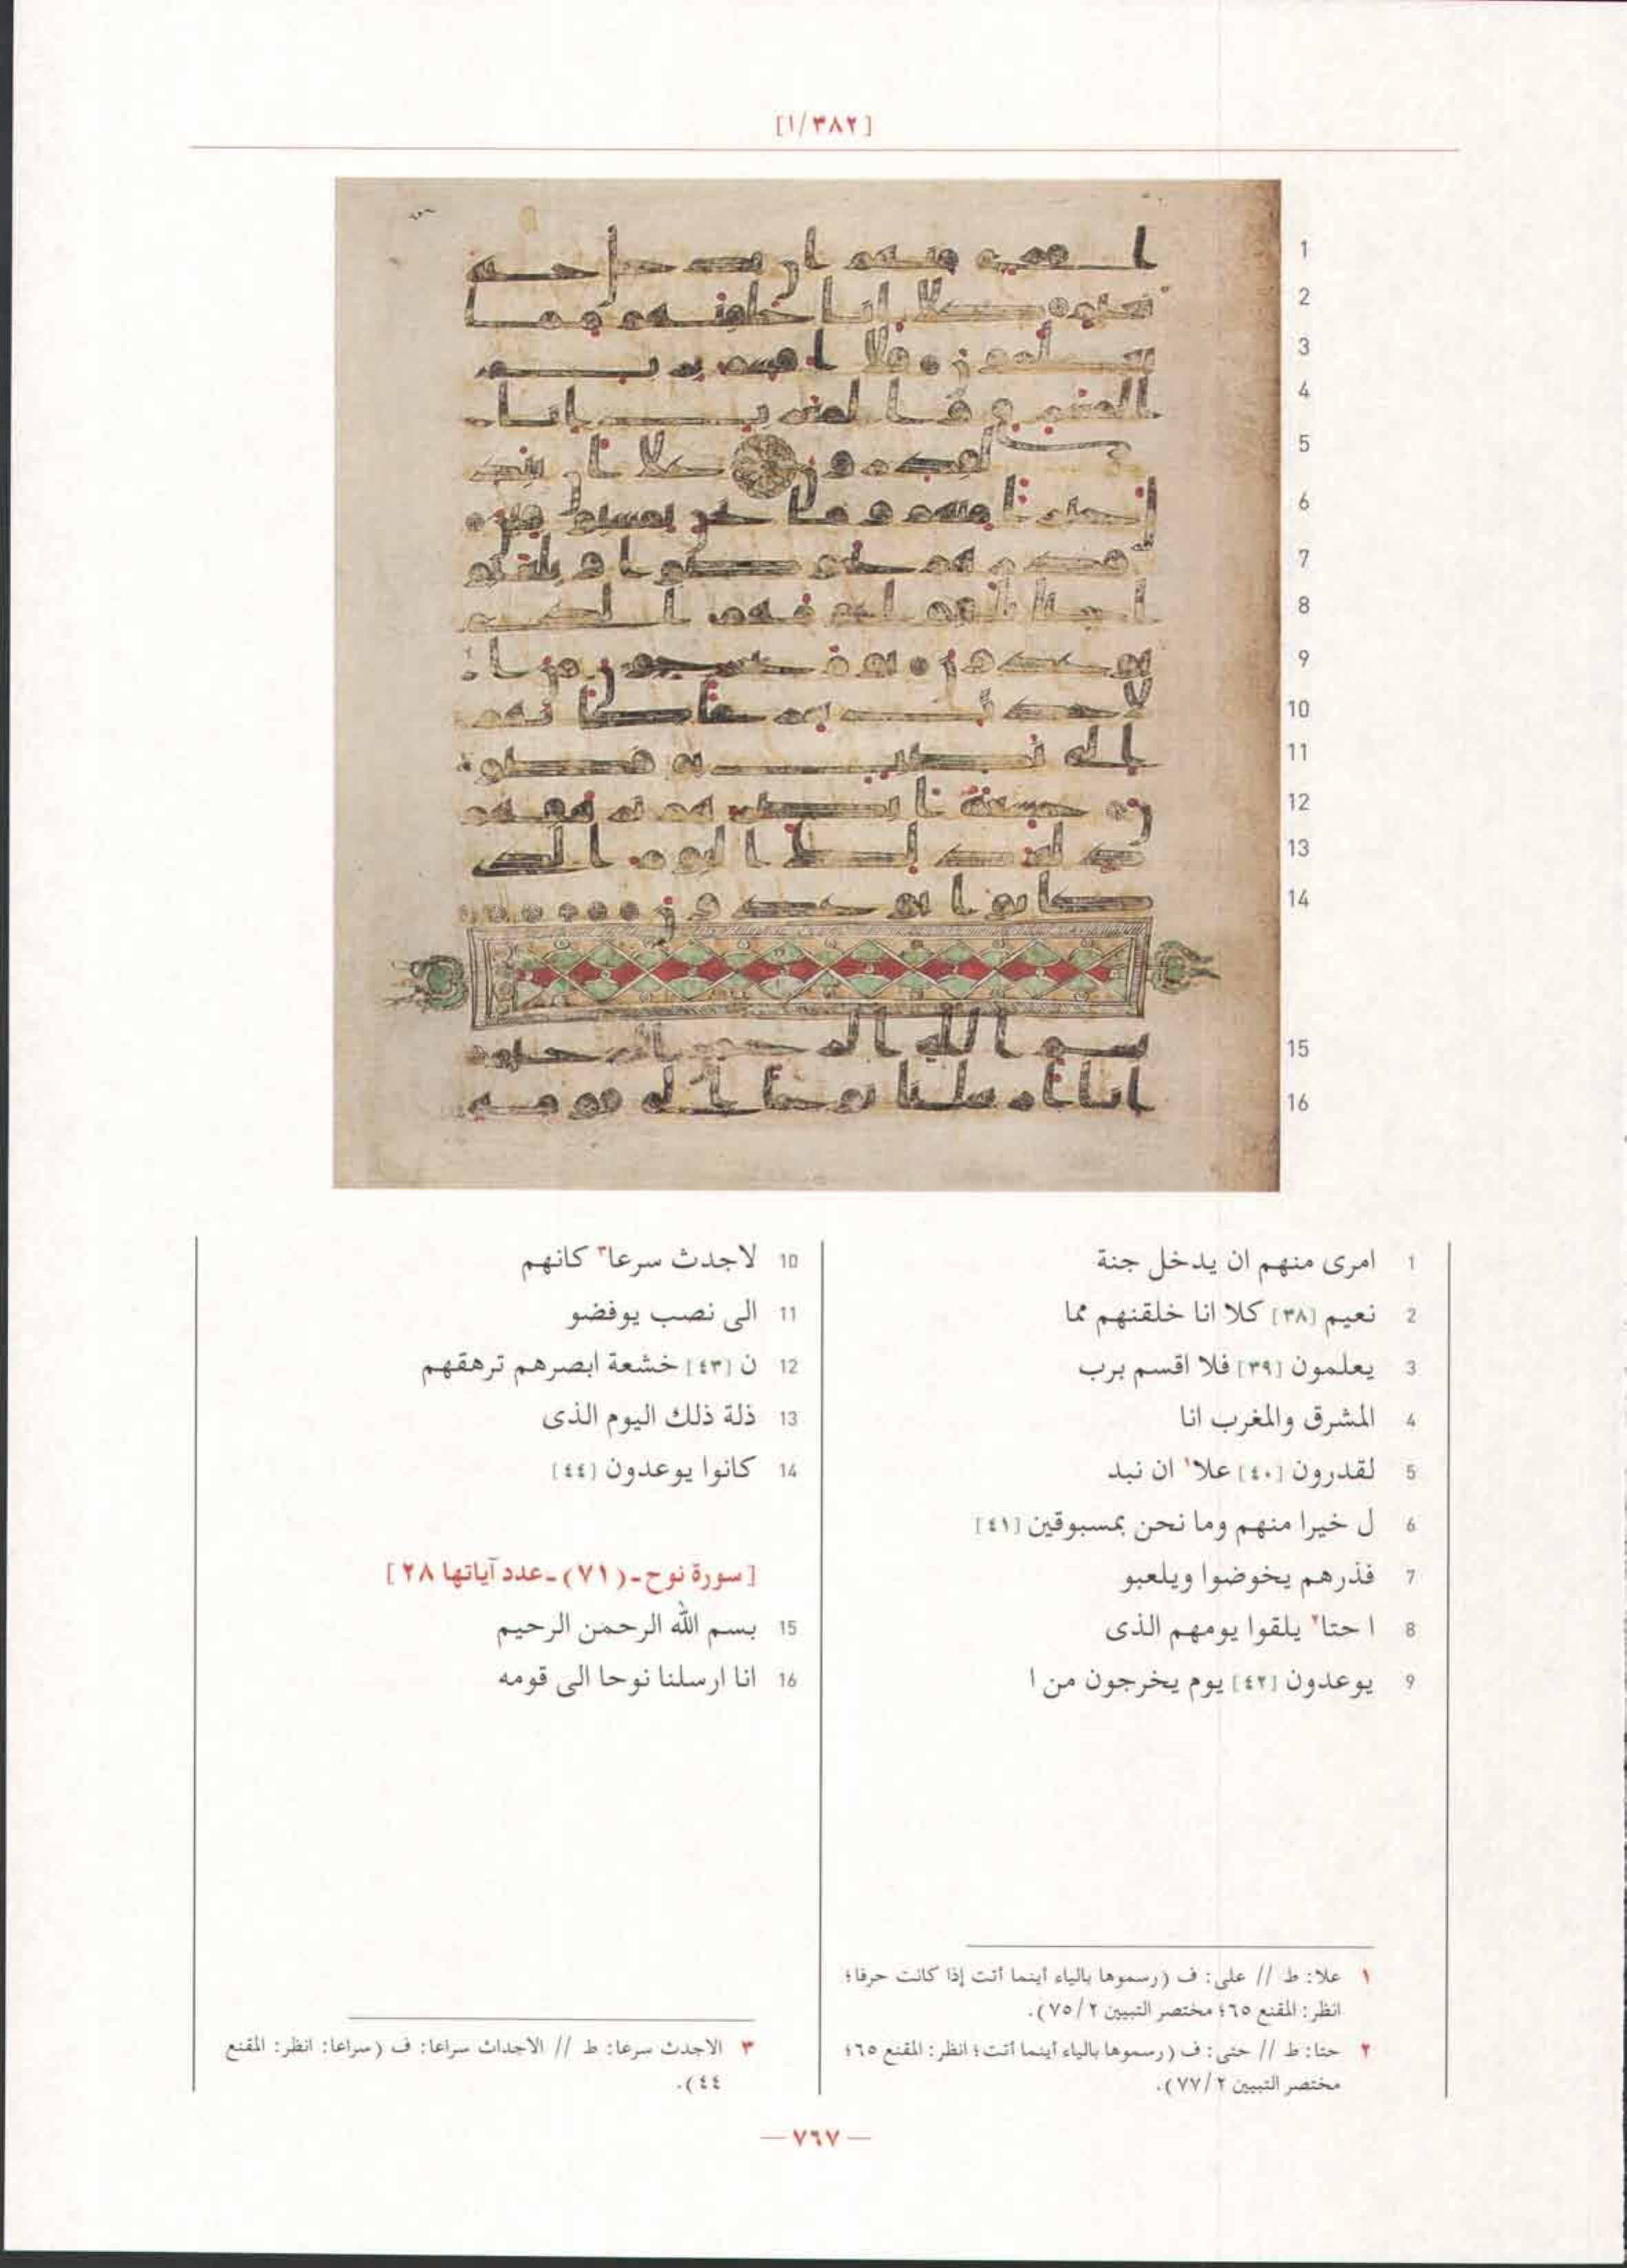 [١/٣٨٢]
1
2
3
4
5
6
7
8
9
10
11
12
13
14
15
16
1 امرى منهم ان يدخل جنة
2 نعيم [٣٨] كلا انا خلقنهم مما
3 يعلمون [٣٩] فلا اقسم برب
4 المشرق والمغرب انا
5 لقدرون [٤٠] علا١ ان نبد
6 ل خيرا منهم وما نحن بمسبوقين [٤١]
7 فذرهم يخوضوا ويلعبو
8 ا حتا٢ يلقوا يومهم الذى
9 يوعدون [٤٢] يوم يخرجون من ا
10 لاجدث سرعا٣ كانهم
11 الى نصب يوفضو
12 ن [٤٣] خشعة ابصرهم ترهقهم
13 ذلة ذلك اليوم الذى
14 كانوا يوعدون [٤٤]
[سورة نوح ـ (٧١) ـ عدد آياتها ٢٨]
15 بسم الله الرحمن الرحيم
16 انا ارسلنا نوحا الى قومه
١ علا: ط // على: ف (رسموها بالياء أينما أتت إذا كانت حرفا؛
انظر: المقنع ٦٥؛ مختصر التبيين ٢/٧٥).
٢ حتا: ط // حتى: ف (رسموها بالياء أينما أتت؛ انظر: المقنع ٦٥؛
مختصر التبيين ٢/٧٧).
٣ الاجدث سرعا: ط // الاجداث سراعا: ف (سراعا: انظر: المقنع
٤٤).
— ٧٦٧ —